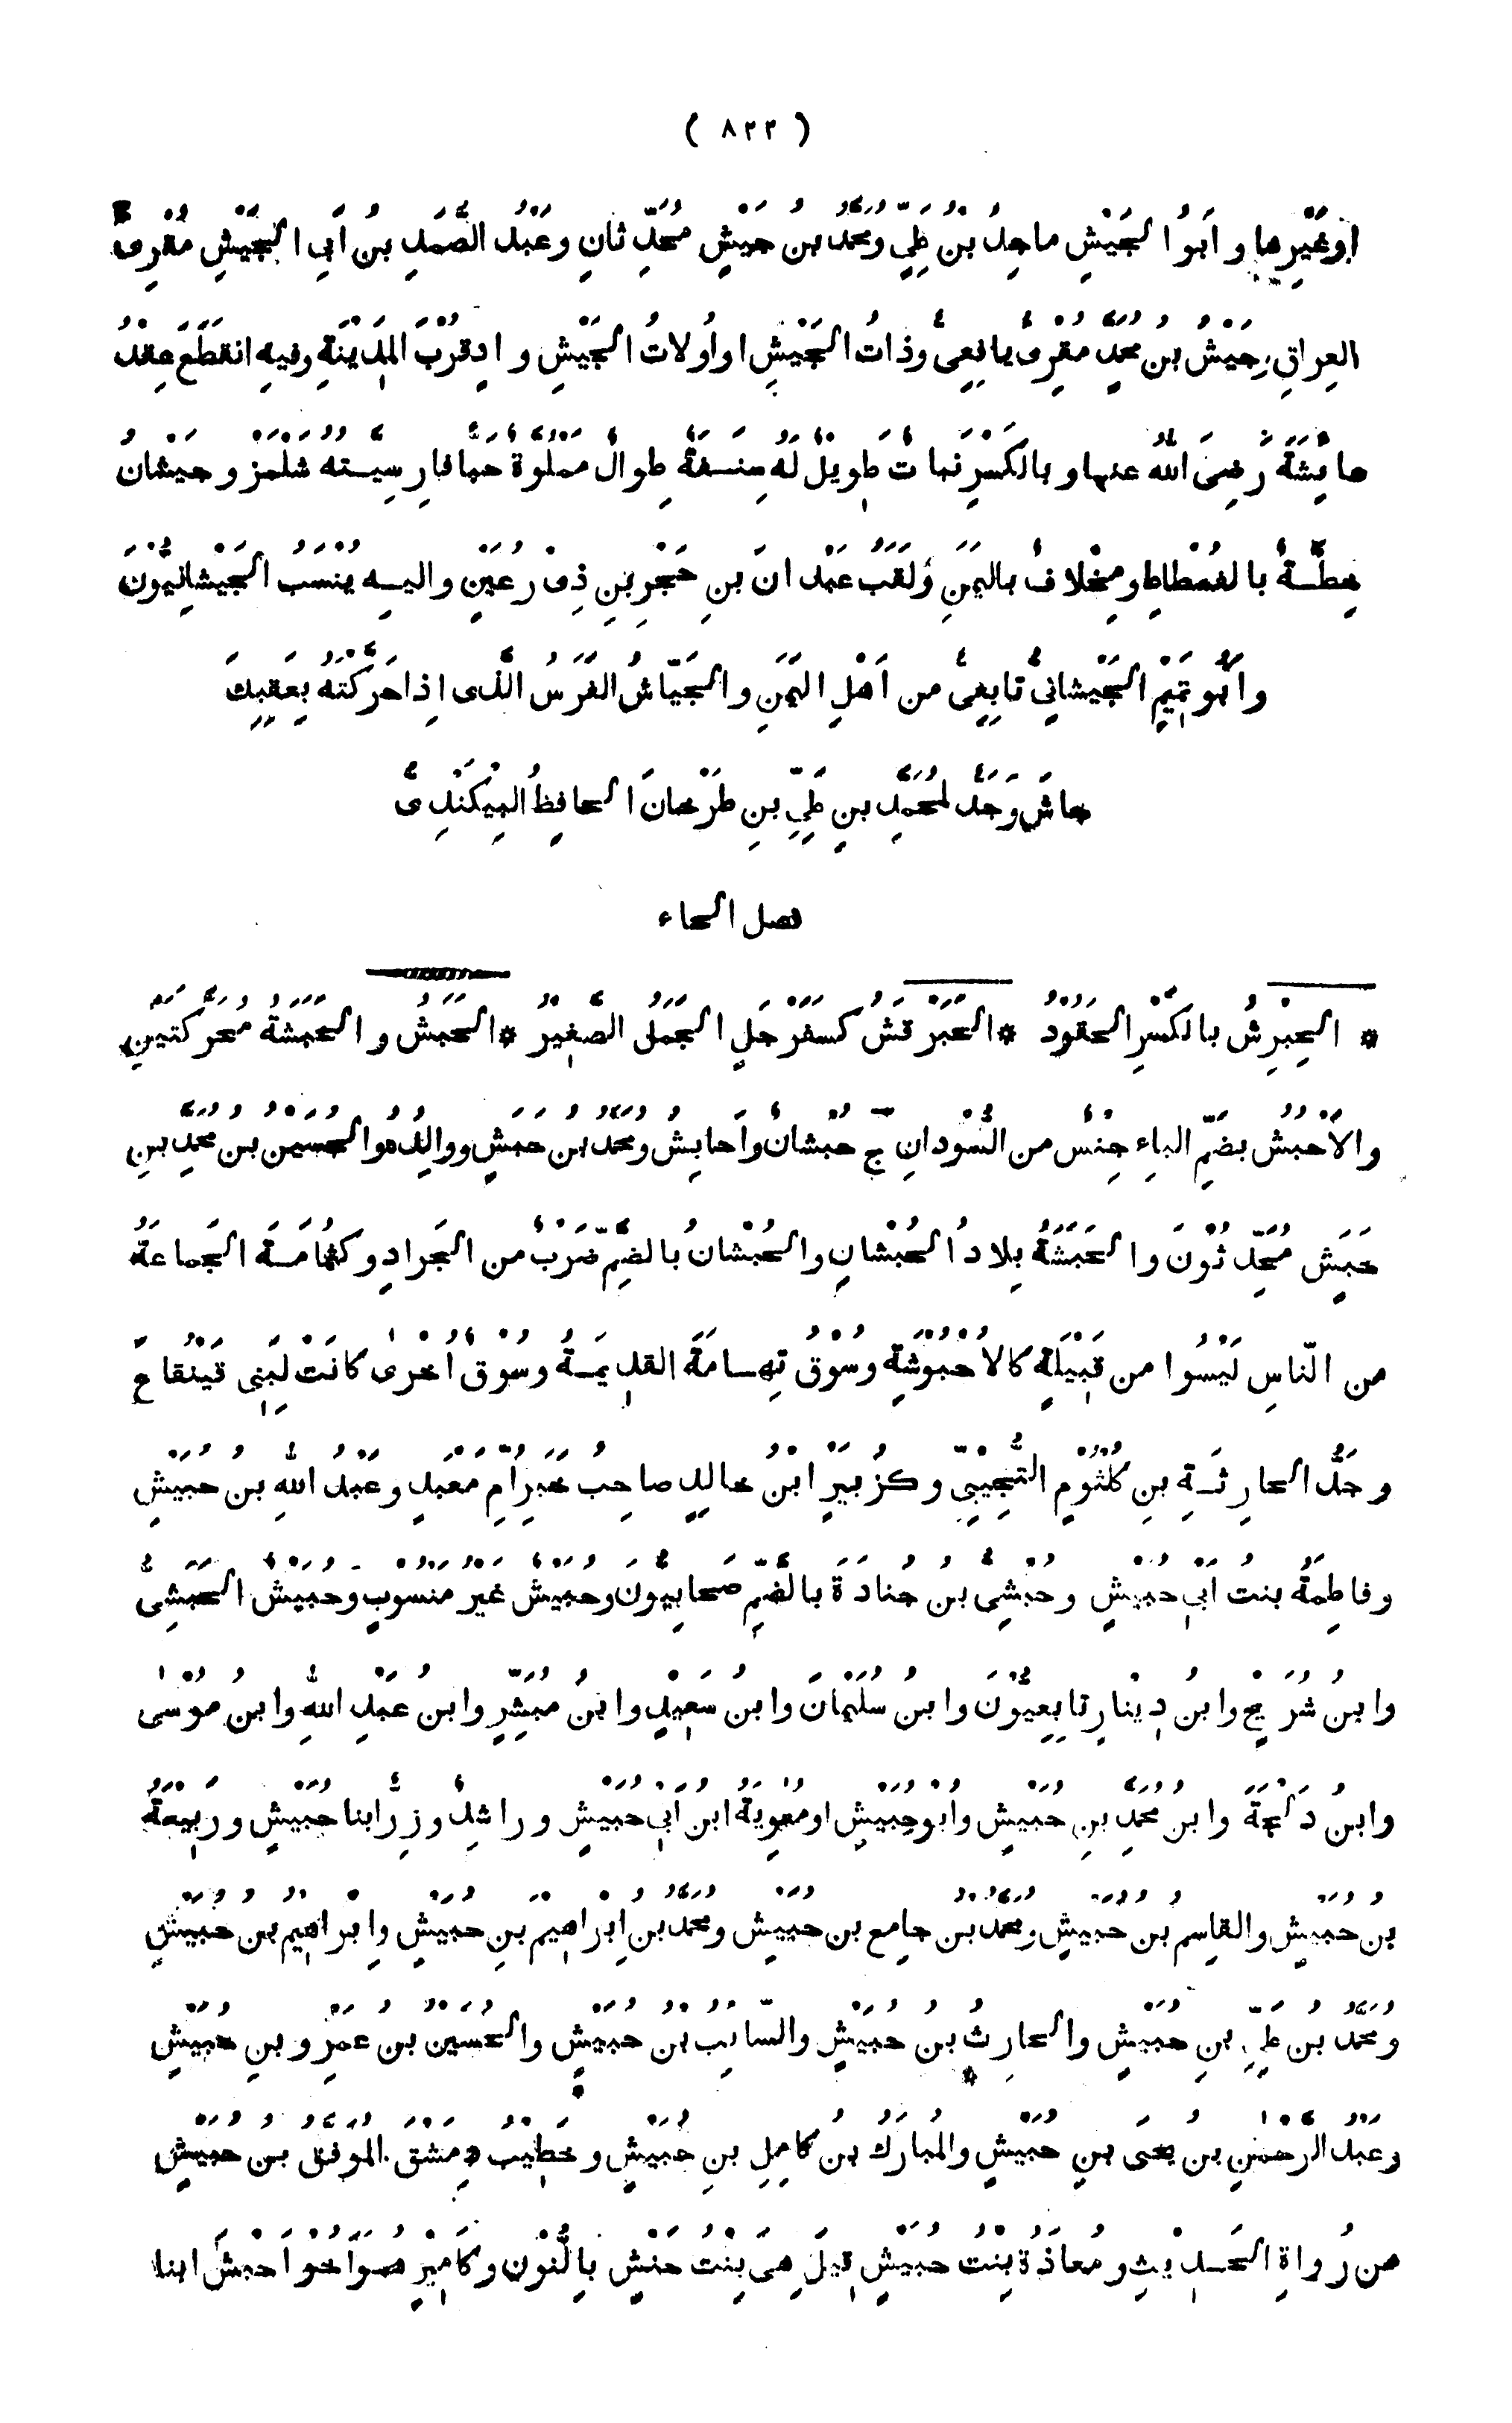 ( ٨٢٢ )
اَوغَيْرِها واَبُوا الجَيْشِ ماجِدُ بْنُ عَلِيٍّ ومُحمَّدُ بنُ جَيْشٍ مُحَدِّثانِ وعَبْدُ الصَّمَدِ بنُ اَبِي الجَيْشِ مُقْرِئُ
العِراقِ وجَيْشُ بنُ مُحمَّدٍ مُقْرِئٌ يافِعِيٌّ وذاتُ الجَيْشِ اواُولاتُ الجَيْشِ وادٍ قُرْبَ المَدِيْنَةِ وفِيهِ انقَطَعَ عِقْدُ
عايِشَةَ رَضِىَ اللهُ عنها وبالكَسْرِ نَباتٌ طوِيْلٌ لَهُ سِنَـفَةٌ طِوالٌ مملُوْةٌ حبًّا فارِسِيَّـتُهُ شلمز وجَيْشانُ
خِطَّـةٌ بالفُسْطاطِ ومِخْلافٌ باليَمَنِ ولَقَبُ عَبْدانَ بنِ حَجْرِ بنِ ذِى رُعَيْنٍ واليـهِ يُنْسَبُ الجَيْشانِيُّوْنَ
واَبُو تَمِيْمٍ الجَيْشانِيُّ تابِعِىٌّ من اَهْلِ اليَمَنِ والجَيّاشُ الفَرَسُ الَّذى اِذا حَرَّكْتَهُ بِعَقِبِكَ
جاشَ وجَدٌّ لمُحَمَّدِ بنِ عَلِيِّ بنِ طَرْخانَ الحافِظُ البِيْكَنْدِىُّ
فصل الحاء
* الحِبْرِشُ بالكَسْرِ الحَقُوْدُ * الحَبَرْقَشُ كسَفَرْجَلٍ الجَمَلُ الصَّغِيْرُ * الحَبَشُ والحَبَشَةُ مُحَرَّكَتَيْنِ
والاَحْبُشُ بضَمِّ الباءِ جِنْسٌ من السُّوْدانِ ج حُبْشانٌ واَحابِشُ ومُحمَّدُ بنُ حَبَشٍ ووالِدُهُ والحُسَيْنُ بنُ مُحمَّدِ بنِ
حَبَشٍ مُحَدِّثُوْنَ والحَبَشَةُ بِلادُ الحُبْشانِ والحُبْشانُ بالضَمِّ ضَرْبٌ من الجَرادِ وكثُمامَـةَ الجَماعَةُ
من النّاسِ لَيْسُوا من قَبِيْلَةٍ كالاُحْبُوْشَةِ وسُوْقُ تِهـامَةَ القدِيْمَـةُ وسُوْقٌ اُخْرٰى كانَتْ لِبَنِى قَيْنُقاعَ
وجَدُّ الحارِثَـةِ بنِ كُلْثُوْمٍ التُّجِيْبِيِّ وكزُبَيْرٍ ابْنُ خالِدٍ صاحِبُ خَبَرِ اُمِّ مَعْبَدٍ وعَبْدُ اللهِ بنُ حُبَيْشٍ
وفاطِمَةُ بنتُ اَبِي حُبَيْشٍ وحُبْشِيُّ بنُ جُنادَةَ بالضَّمِّ صَحابِيُّوْنَ وحُبَيْشٌ غَيْرُ مَنْسُوْبٍ وحُبَيْشٌ الحَبَشِىُّ
وابنُ شُرَيْحٍ وابنُ دِيْنارٍ تابِعِيُّوْنَ وابنُ سُلَيْمانَ وابنُ سَعِيْدٍ وابنُ مُبَشِّرٍ وابنُ عَبْدِ اللهِ وابنُ مُوْسٰى
وابنُ دُلْجَةَ وابنُ مُحَمَّدِ بنِ حُبَيْشٍ واَبُوحُبَيْشٍ اومُعٰوِيَةُ ابنُ اَبِي حُبَيْشٍ وراشِدٌ وزِرٌّ ابنا حُبَيْشٍ ورَبِيْعَةُ
بنُ حُبَيْشٍ والقاسِمُ بنُ حُبَيْشٍ ومُحَمَّدُ بنُ جامِعِ بنِ حُبَيْشٍ ومُحَمَّدُ بنُ اِبْراهِيْمَ بنِ حُبَيْشٍ واِبْراهِيْمُ بنُ حُبَيْشٍ
ومُحَمَّدُ بنُ عَلِيِّ بنِ حُبَيْشٍ والحارِثُ بنُ حُبَيْشٍ والسّائِبُ بنُ حُبَيْشٍ والحُسَيْنُ بنُ عُمَرَ وبنِ حُبَيْشٍ
وعَبْدُ الرحمٰنِ بنُ يَحْيَى بنِ حُبَيْشٍ والمُبارَكُ بنُ كامِلِ بنِ حُبَيْشٍ وخَطِيْبُ دِمَشْقَ المُوَفَّقُ بنُ حُبَيْشٍ
من رُواةِ الحَـدِيْثِ ومُعاذَةُ بِنْتُ حُبَيْشٍ قِيْلَ هِىَ بِنْتُ حَنَشٍ بالنُّوْنِ وكاَمِيْرٍ هُـوَ اَخُوْ اَحْبَشَ ابنا